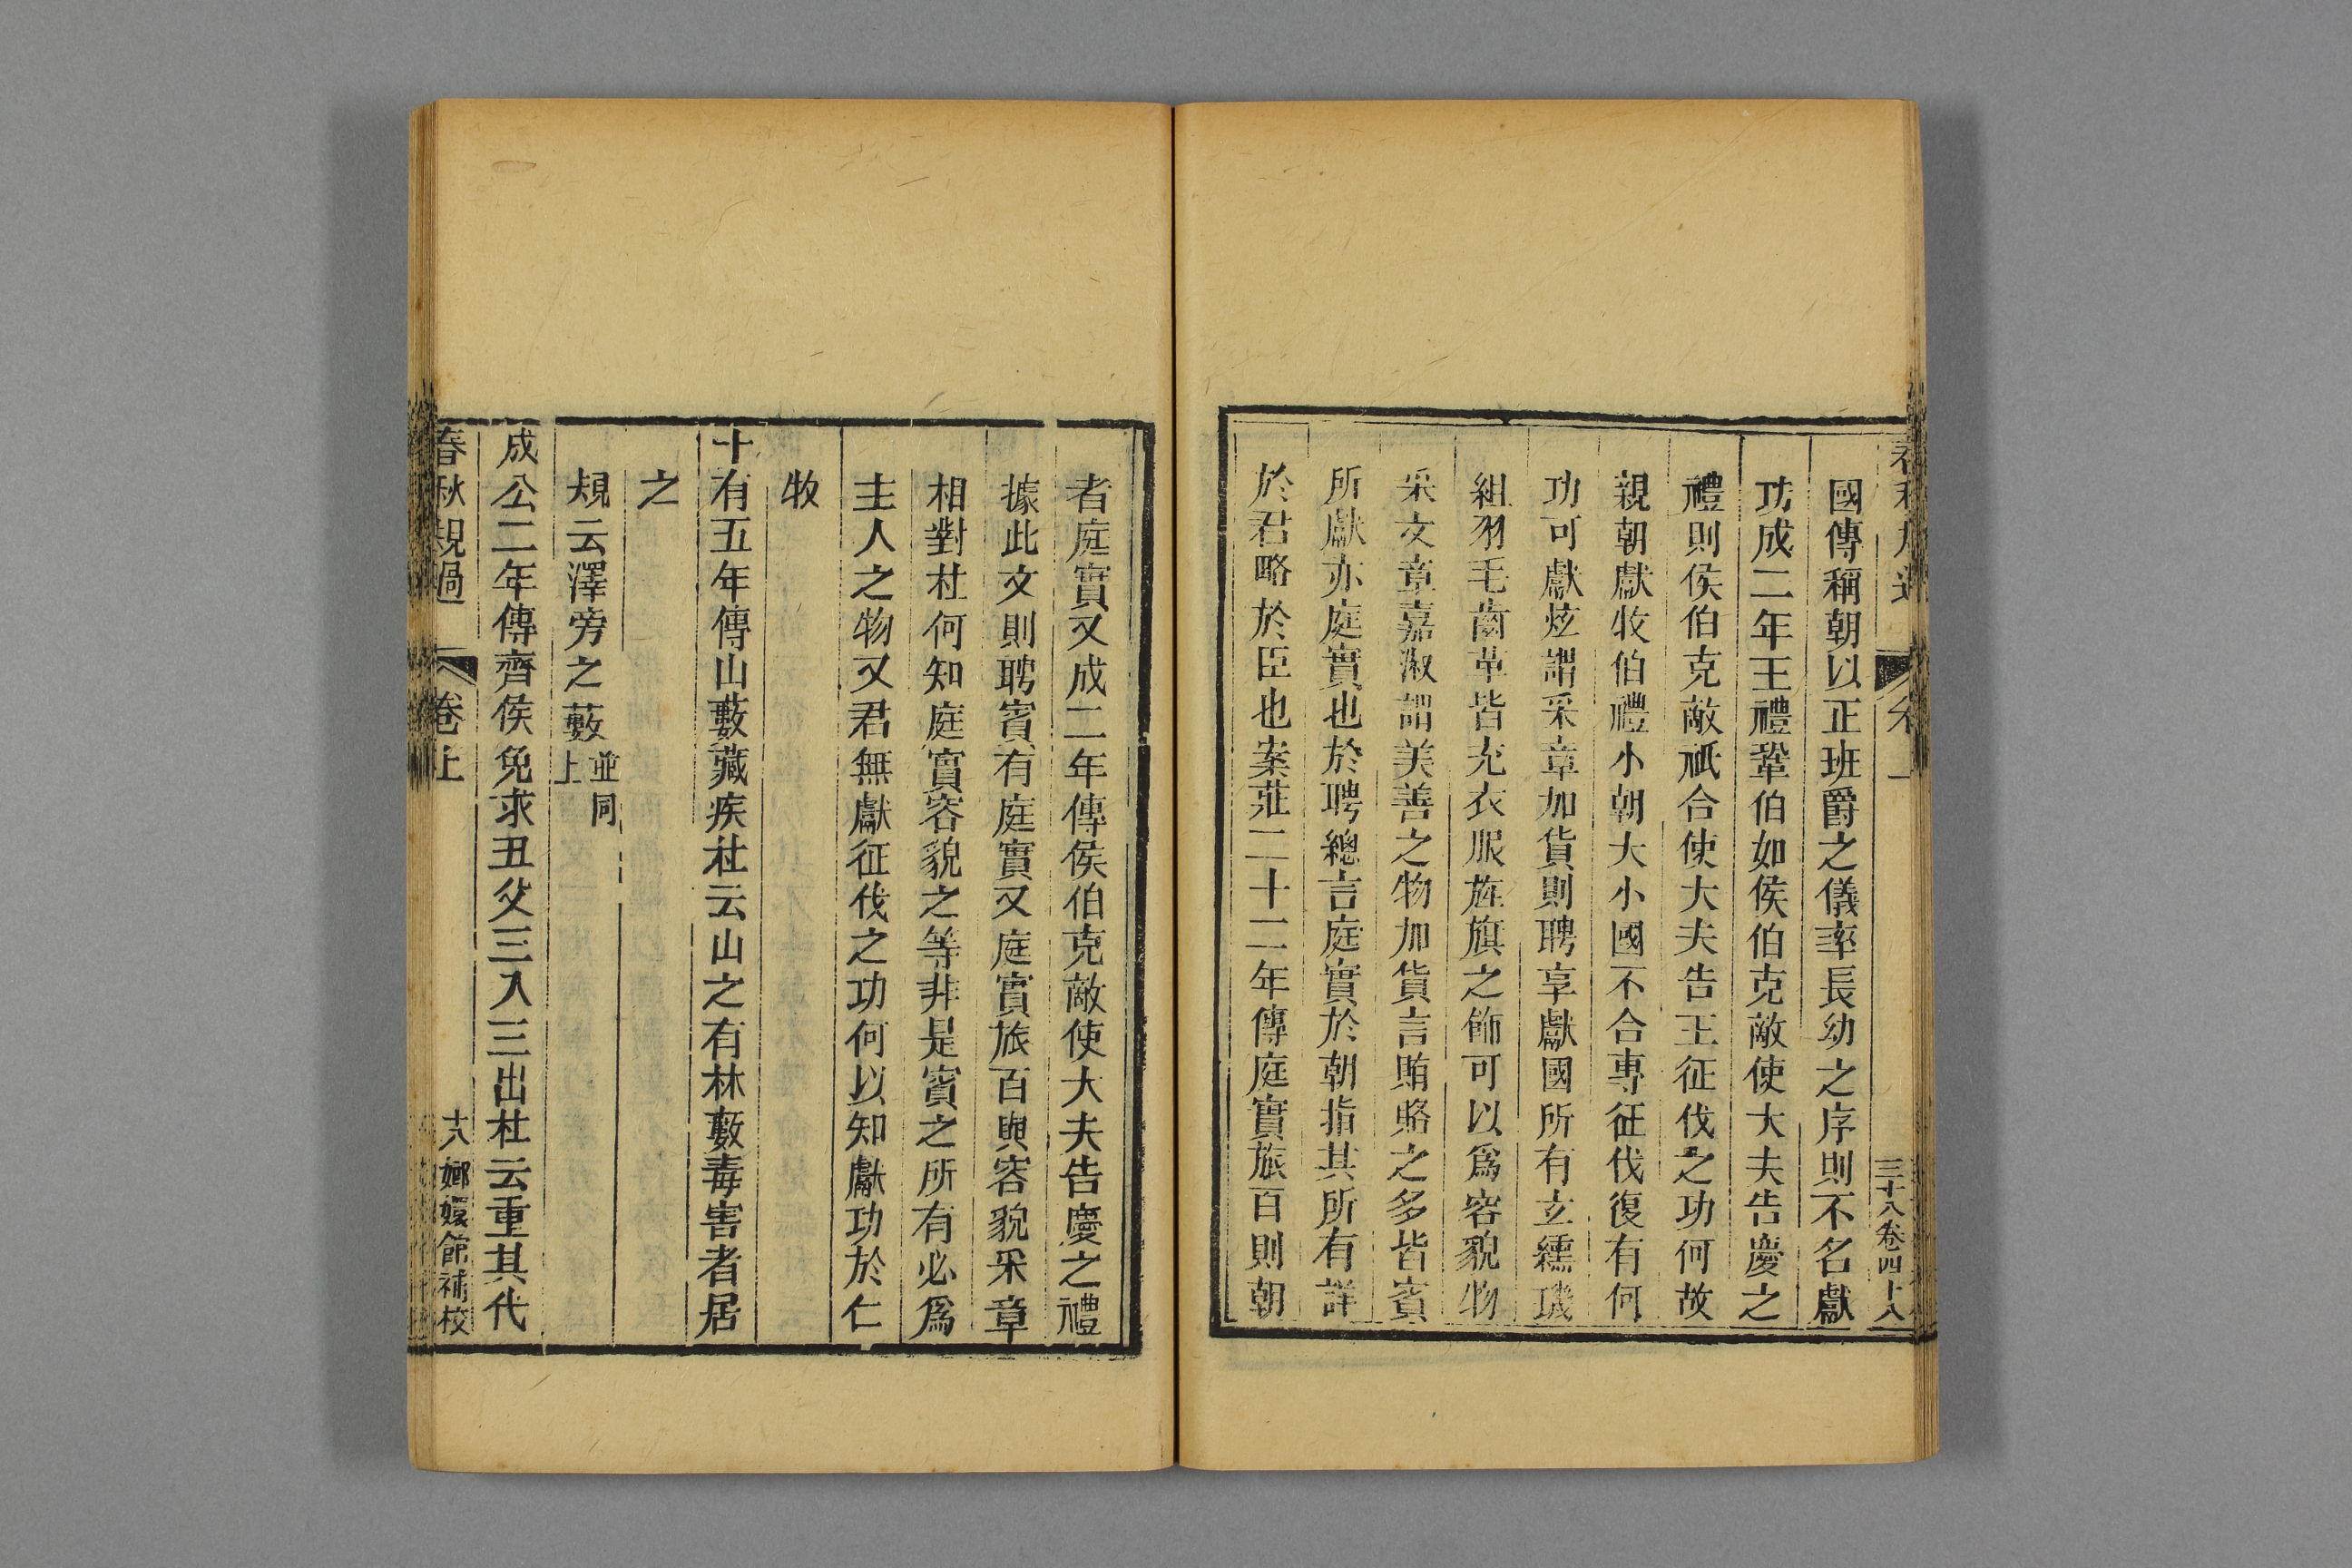 三十八卷四十八
國傳稱朝以正班爵之儀率長幼之序則不名獻
功成二年王禮鞏伯如侯伯克敵使大夫告慶之
禮則侯伯克敵祇合使大夫告王征伐之功何故
親朝獻牧伯禮小朝大小國不合專征伐復有何
功可獻炫謂采章加貨則聘享獻國所有玄纁璣
組羽毛齒革皆充衣服旌旗之飾可以爲容貌物
采文章嘉淑謂美善之物加貨言賄賂之多皆賓
所獻亦庭實也於聘總言庭實於朝指其所有詳
於君略於臣也案莊二十二年傳庭實旅百則朝
者庭實又成二年傳侯伯克敵使大夫告慶之禮
據此文則聘賓有庭實又庭實旅百與容貌采章
相對杜何知庭實容貌之等非是賓之所有必爲
主人之物又君無獻征伐之功何以知獻功於仁
牧
十有五年傳山藪藏疾杜云山之有林藪毒害者居
之
規云澤旁之藪並同上
成公二年傳齊侯免求丑父三入三出杜云重其代
春秋規過 卷上 十八 嫏嬛館補校